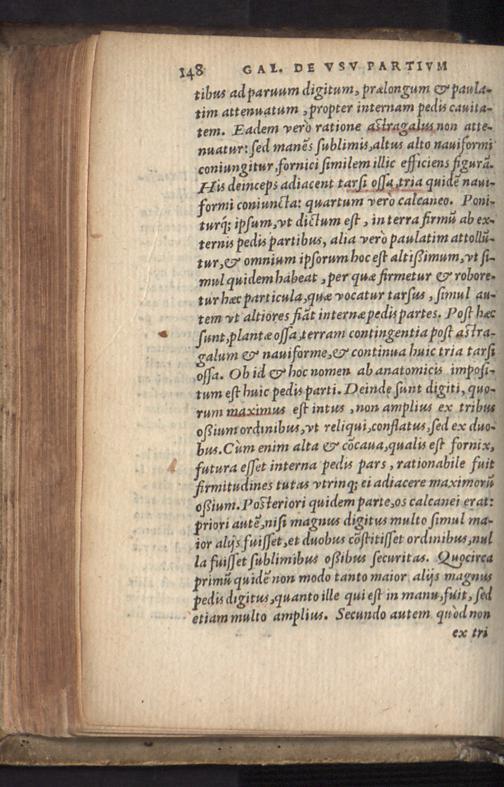 148 GAL. DE VSV PARTIVM
tibus ad paruum digitum, prælongum & paula-
tim attenuatum, propter internam pedis cauita-
tem. Eadem verò ratione astragalus non atte-
nuatur: sed manẽs sublimis, altus alto nauiformi
coniungitur, fornici similem illic efficiens figurã.
His deinceps adiacent tarsi ossa, tria quidẽ naui-
formi coniuncta: quartum verò calcaneo. Poni-
turq; ipsum, vt dictum est, in terra firmũ ab ex-
ternis pedis partibus, alia verò paulatim attollũ-
tur, & omnium ipsorum hoc est altißimum, vt si-
mul quidem habeat, per quæ firmetur & robore-
tur hæc particula, quæ vocatur tarsus, simul au-
tem vt altiores fiãt internæ pedis partes. Post hæc
sunt, plantæ ossa, terram contingentia post astra-
galum & nauiforme, & continua huic tria tarsi
ossa. Ob id & hoc nomen ab anatomicis imposi-
tum est huic pedis parti. Deinde sunt digiti, quo-
rum maximus est intus, non amplius ex tribus
oßium ordinibus, vt reliqui, conflatus, sed ex duo-
bus. Cùm enim alta & cõcaua, qualis est fornix,
futura esset interna pedis pars, rationabile fuit
firmitudines tutas vtrinq; ei adiacere maximorũ
oßium. Posteriori quidem parte, os calcanei erat:
priori autẽ, nisi magnus digitus multo simul ma-
ior alijs fuisset, et duobus cõstitisset ordinibus, nul
la fuisset sublimibus oßibus securitas. Quocirca
primũ quidẽ non modo tanto maior alijs magnus
pedis digitus, quanto ille qui est in manu, fuit, sed
etiam multo amplius. Secundo autem quòd non
ex tri